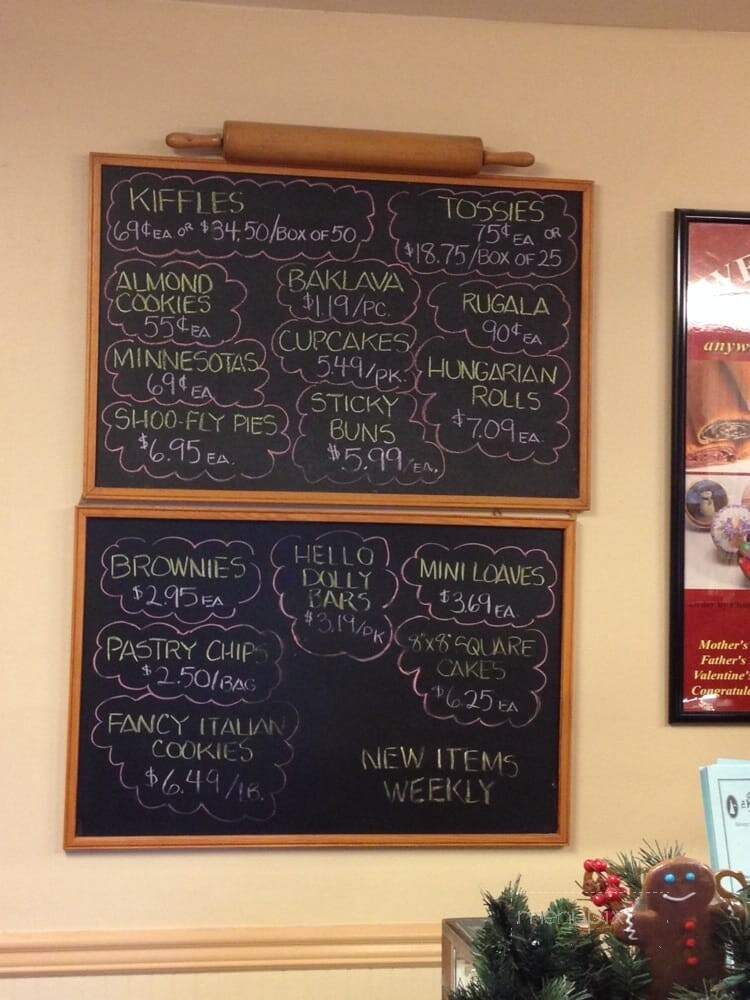 KIFFLES
69¢ EA OR $34.50/BOX OF 50
TOSSIES
75¢ EA OR
$18.75/BOX OF 25
ALMOND
COOKIES
55¢ EA
BAKLAVA
$1.19/PC.
RUGALA
90¢ EA
MINNESOTAS
69¢ EA
CUPCAKES
5.49/PK.
HUNGARIAN
ROLLS
$7.09 EA.
SHOO-FLY PIES
$6.95 EA.
STICKY
BUNS
$5.99/EA.
BROWNIES
$2.95 EA
HELLO
DOLLY
BARS
$3.19/PK
MINI LOAVES
$3.69 EA.
PASTRY CHIPS
$2.50/BAG
8"X8" SQUARE
CAKES
$6.25 EA
FANCY ITALIAN
COOKIES
$6.49/LB.
NEW ITEMS
WEEKLY
anyw
Mother's
Father's
Valentine's
Congratul
menupix